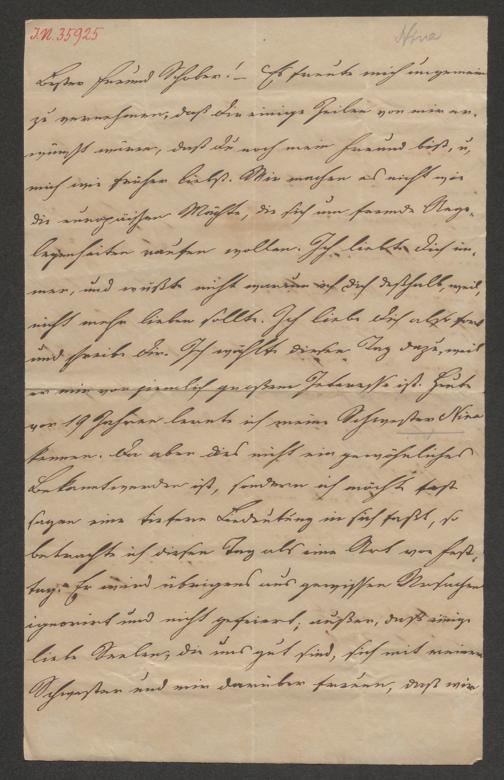 I.N. 35925
Nina
Bester Freund Schober! – Es freute mich ungemein
zu vernehmen, daß dir einige Zeilen von mir er-
wünscht wären, daß du noch mein Freund bist, u,
mich wie früher liebst. Wir machen es nicht wie
die europäischen Mächte, die sich um fremde Ange-
legenheiten raufen wollen. Ich liebte dich im-
mer, und wüßte nicht warum ich dich deßhalb, weil,
nicht mehr lieben sollte. Ich liebe dich also fort
und schreibe dir. Ich wählte diesen Tag dazu, weil
er mir von ziemlich großem Interesse ist. Heute
vor 19 Jahren lernte ich meine Schwester Nina
kennen. Da aber dies nicht ein gewöhnliches
Bekanntwerden ist, sondern ich möchte fast
sagen eine tiefere Bedeutung in sich faßt, so
betrachte ich diesen Tag als eine Art von Fest-
tag. Er wird übrigens aus gewissen Ursachen
ignorirt und nicht gefeiert; außer, daß einige
liebe Seelen, die uns gut sind, sich mit meiner
Schwester und mir darüber freuen, daß wir